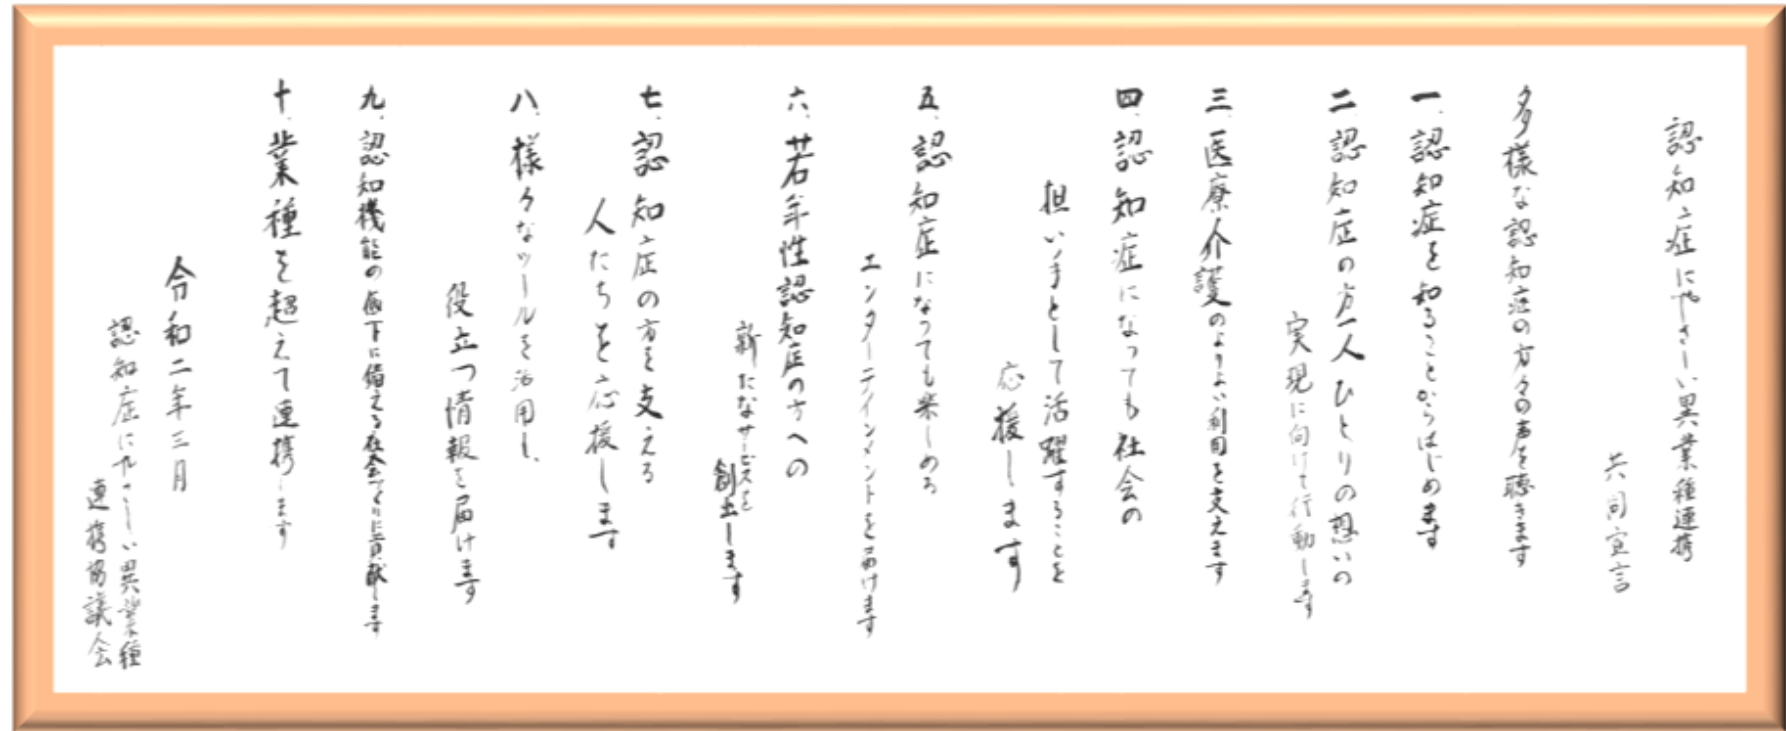 認知症にやさしい異業種連携
共同宣言
多様な認知症の方々の声を聴きます
一、認知症を知ることからはじめます
二、認知症の方一人ひとりの想いの
実現に向けて行動します
三、医療介護のよりよい利用を支えます
四、認知症になっても社会の
担い手として活躍することを
応援します
五、認知症になっても楽しめる
エンターテインメントを届けます
六、若年性認知症の方への
新たなサービスを
創出します
七、認知症の方を支える
人たちを応援します
八、様々なツールを活用し、
役立つ情報を届けます
九、認知機能の低下に備える社会づくりに貢献します
十、業種を超えて連携します
令和二年三月
認知症にやさしい異業種
連携協議会